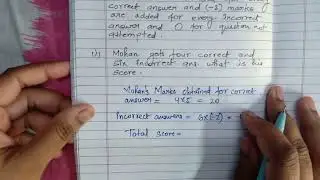 correct answer and (-2) marks
are added for every incorrect
answer and 0 for question not
attempted.
(i) Mohan gets four correct and
Six Incorrect ans what is his
Score.
Mohan's Marks obtained for correct
answer = 4x5 = 20
Incorrect answers = 6x(-2) =
Total Score=